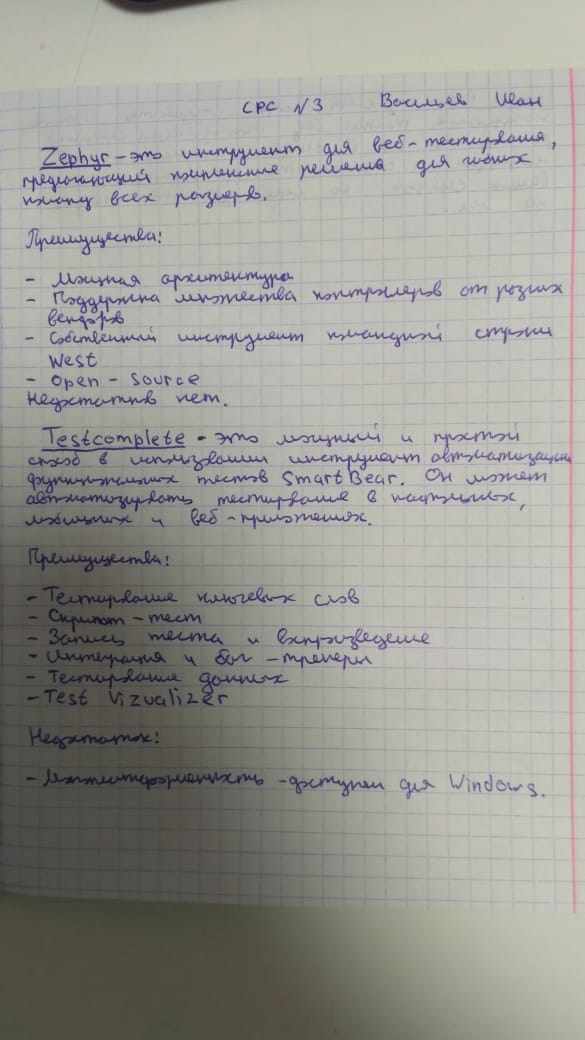 СРС №3 Васильев Иван
Zephyr - это инструмент для веб-тестирования,
предлагающий решения для гибких
команд всех размеров.
Преимущества:
- Мощная архитектура
- Поддержка множества контроллеров от разных
вендоров
- Собственный инструмент командной строки
West
- Open - Source
Недостатков нет.
Testcomplete - это мощный и простой
способ в использовании инструмент автоматизации
функциональных тестов SmartBear. Он может
автоматизировать тестирование в настольных,
мобильных и веб-приложениях.
Преимущества:
- Тестирование ключевых слов
- Скрипт - тест
- Запись теста и воспроизведение
- Интеграция и баг - трекеры
- Тестирование данных
- Test Vizualizer
Недостаток:
- доступен для Windows.